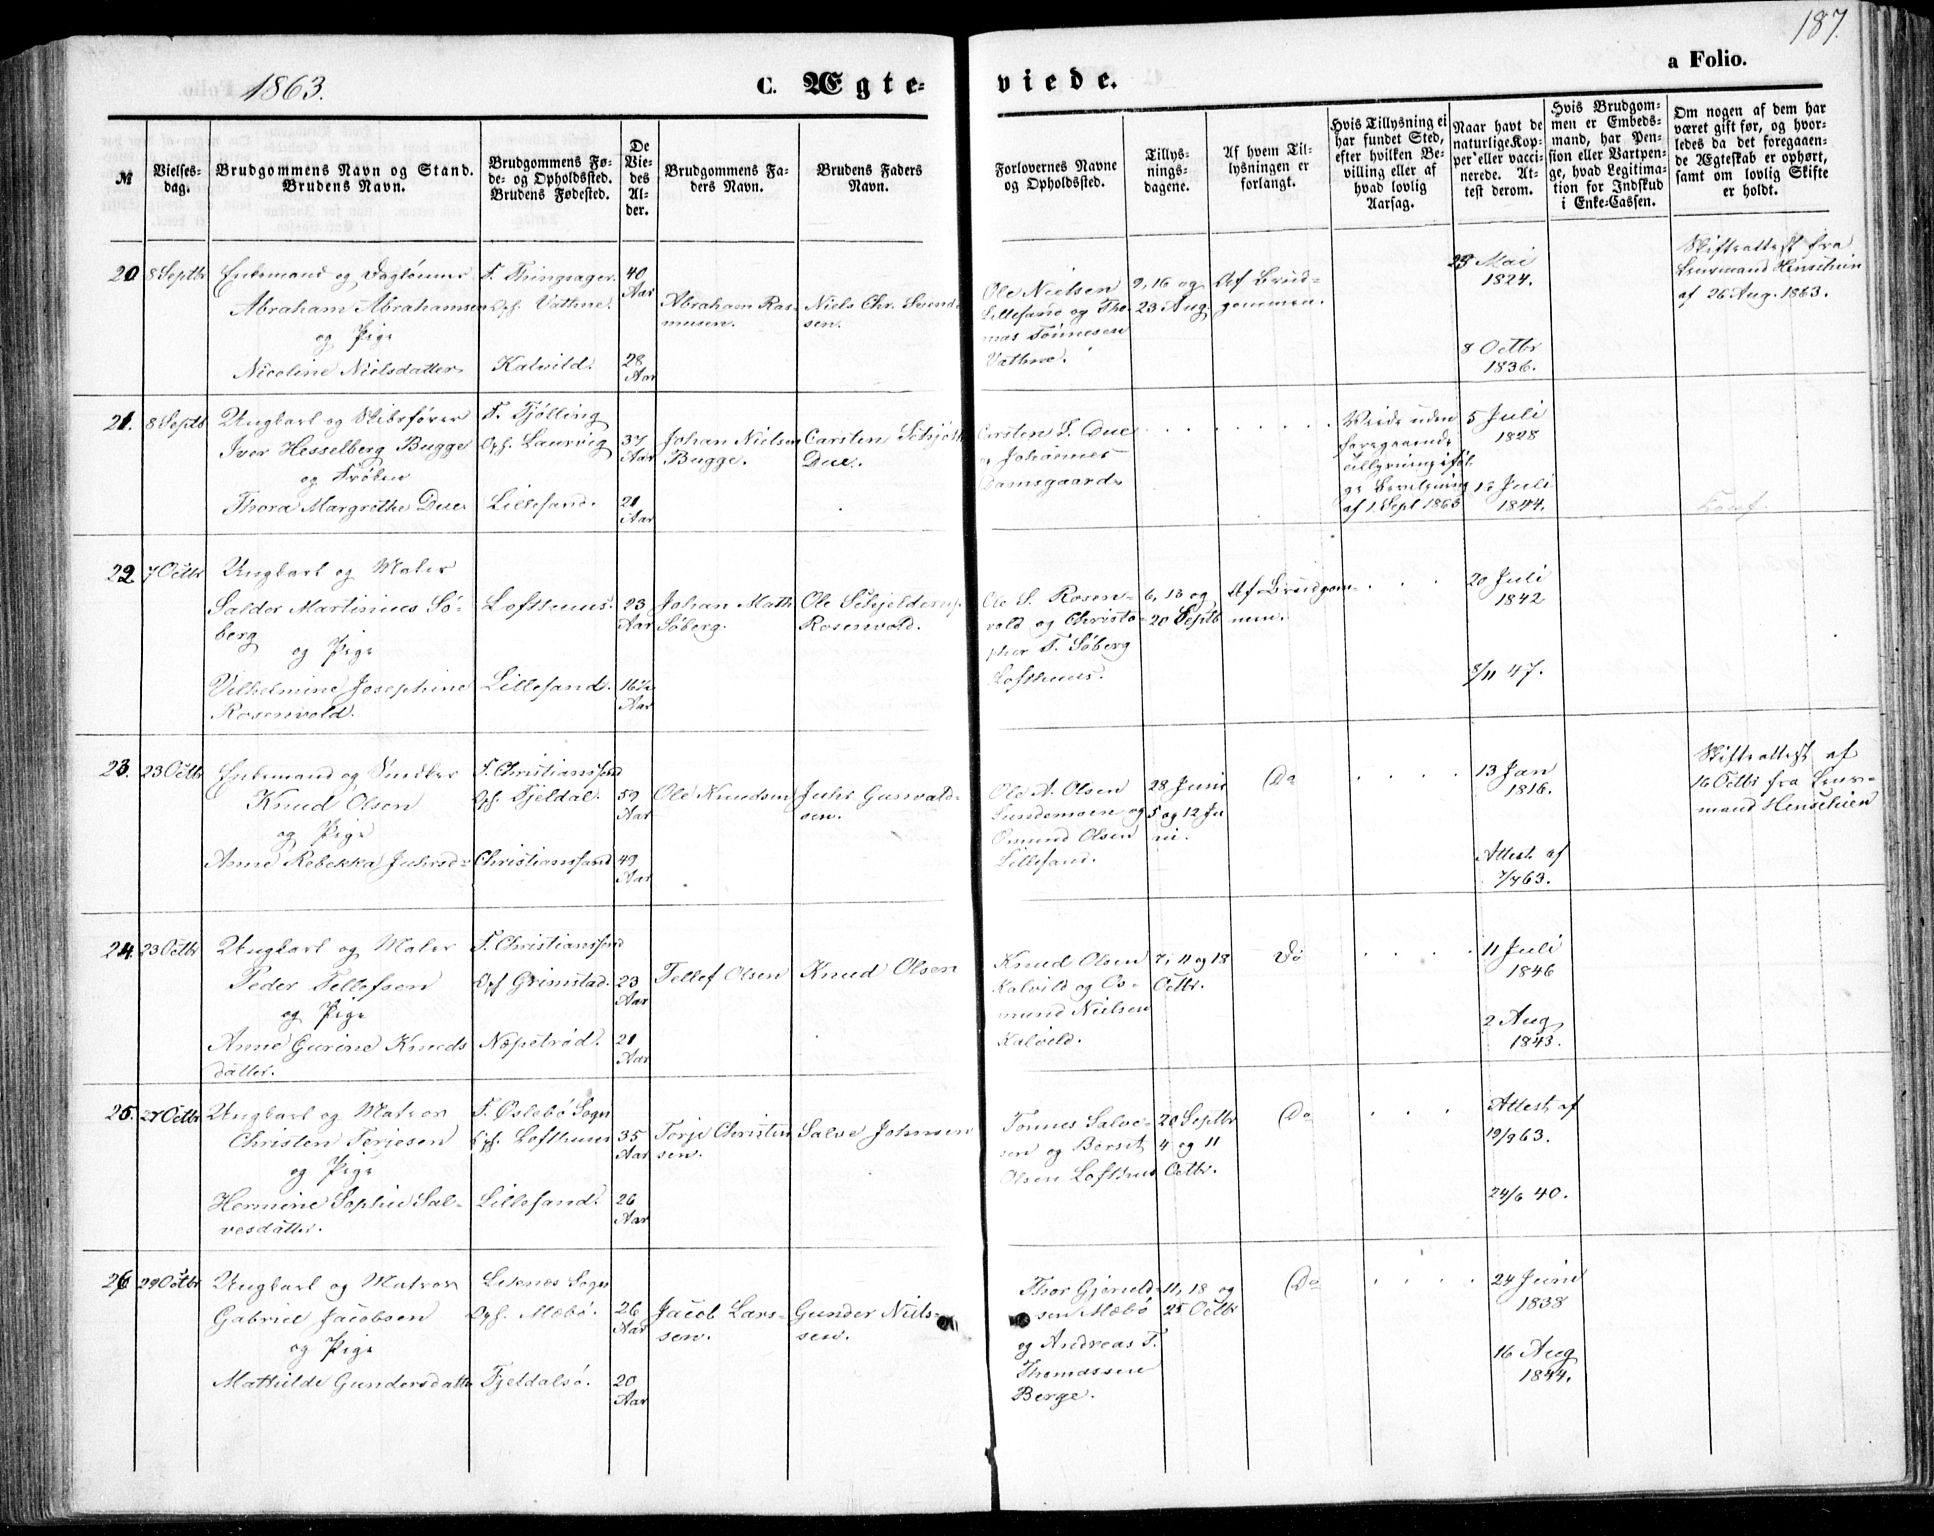 1863.
C. Ægte-
viede.
a Folio.
187.
№
Vielses-
dag.
Brudgommens Navn og Stand.
Brudens Navn.
Brudgommens Fø-
de- og Opholdssted.
Brudens Fødested.
De
Vie-
des
Al-
der.
Brudgommens Fa-
ders Navn.
Brudens Faders
Navn.
Forlovernes Navne
og Opholdssted.
Tillys-
nings-
dagene.
Af hvem Til-
lysningen er
forlangt.
Hvis Tillysning ei
har fundet Sted,
efter hvilken Be-
villing eller af
hvad lovlig
Aarsag.
Naar havt de
naturlige Kop-
per eller vacci-
nerede. At-
test derom.
Hvis Brudgom-
men er Embeds-
mand, har Pen-
sion eller Vartpen-
ge, hvad Legitima-
tion for Indskud
i Enke-Cassen.
Om nogen af dem har
været gift før, og hvor-
ledes da det foregaaen-
de Ægteskab er ophørt,
samt om lovlig Skifte
er holdt.
20
8 Septbr
Enkemand og Dagløнner
Abraham Abrahamsen
og Pige
Nicoline Nielsdatter
F. Thingsager
Oph. Vathne.
Kalvild.
40
Aar
28
Aar
Abraham Ras-
musen.
Niels Chr. Svend-
sen.
Ole Nielsen
Lillesand og Tho-
mas Tønnesen
Vathne.
9, 16 og
23 Aug
Af Brud-
gommen.
23 Mai
1824.
8 Octbr
1836.
Skifteattest fra
Lensmand Henschien
af 26 Aug. 1863.
21.
8 Septb
Ungkarl og Skibsfører
Iver Hesselberg Bugge
og Frøken
Thora Margrethe Due
F. Tjølling
Oph. Laurvig
Lillesand.
37
Aar
21
Aar
Johan Nielsen
Bugge.
Carsten Schjøth
Due.
Carsten S. Due
og Johannes
Damsgaard
Viede uden
foregaaende
Tillysning iføl-
ge Bevilgning
af 1 Sept 1863
5 Juli
1828
13 Juli
1844.
Konf.
22.
7 Octbr
Ungkarl og Maler
Salder Martinius Sø-
berg
og Pige
Vilhelmine Josephine
Rosenvold.
Lofthuus.
Lillesand.
23
Aar
16½
Aar
Johan Math
Søberg.
Ole Schjelderup
Rosenvold.
Ole S. Rosen-
vold og Christo-
pher F. Søberg
Lofthuus.
6, 13 og
20 Septb
Af Brudgom-
men.
20 Juli
1842
8/11 47.
23.
23 Octbr
Enkemand og Snedker
Knud Olsen
og Pige
Anne Rebekka Juhrsd-
F. Christianssand
Oph. Fjeldal.
Christianssand
59
Aar
49
Aar
Ole Knudsen
Juhr Gunvald-
sen.
Ole A. Olsen
Lundemoen og
Omund Olsen
Lillesand.
28 Juni
5 og 12 Ju
ni.
Do
13 Jan
1816.
Attest af
7/7 63.
Skifteattest af
16 Octbr fra Lens-
mand Henschien
24.
23 Octbr
Ungkarl og Maler
Peder Tellefsen
og Pige
Anne Gurine Knuds
datter.
F. Christianssand
Oph Grimstad.
Næpetrød.
23
Aar
21
Aar
Tellef Olsen
Knud Olsen
Knud Olsen
Kalvild og Os-
mund Nielsen
Kalvild.
7, 11 og 18
Octbr.
Do
11 Juli
1846
2 Aug
1843.
25.
27 Octbr
Ungkarl og Matros
Christen Terjesen
og Pige
Hermine Sophie Sal-
vesdatter.
F. Øslebø Sogn
Oph. Lofthuus
Lillesand.
35
Aar
26
Aar
Torje Christen
sen.
Salve Johnsen
Tønnes Salve-
sen og Berset
Olsen Lofthus
20 Septbr
4 og 11
Octbr.
Do
Attest af
19/9 63.
24/6 40.
26
29 Octbr
Ungkarl og Matros
Gabriel Jacobsen
og Pige
Mathilde Gundersdatter
Sogn
Oph. Mæbø.
Fjeldalsø.
26
Aar
20
Aar
Jacob Lars-
sen.
Gunder Niels-
sen.
Thor Gjeruld-
sen Mæbø
og Andreas T.
Thomassen
Berge.
11, 18 og
25 Octbr
Do
24 Juni
1838
16 Aug
1844.